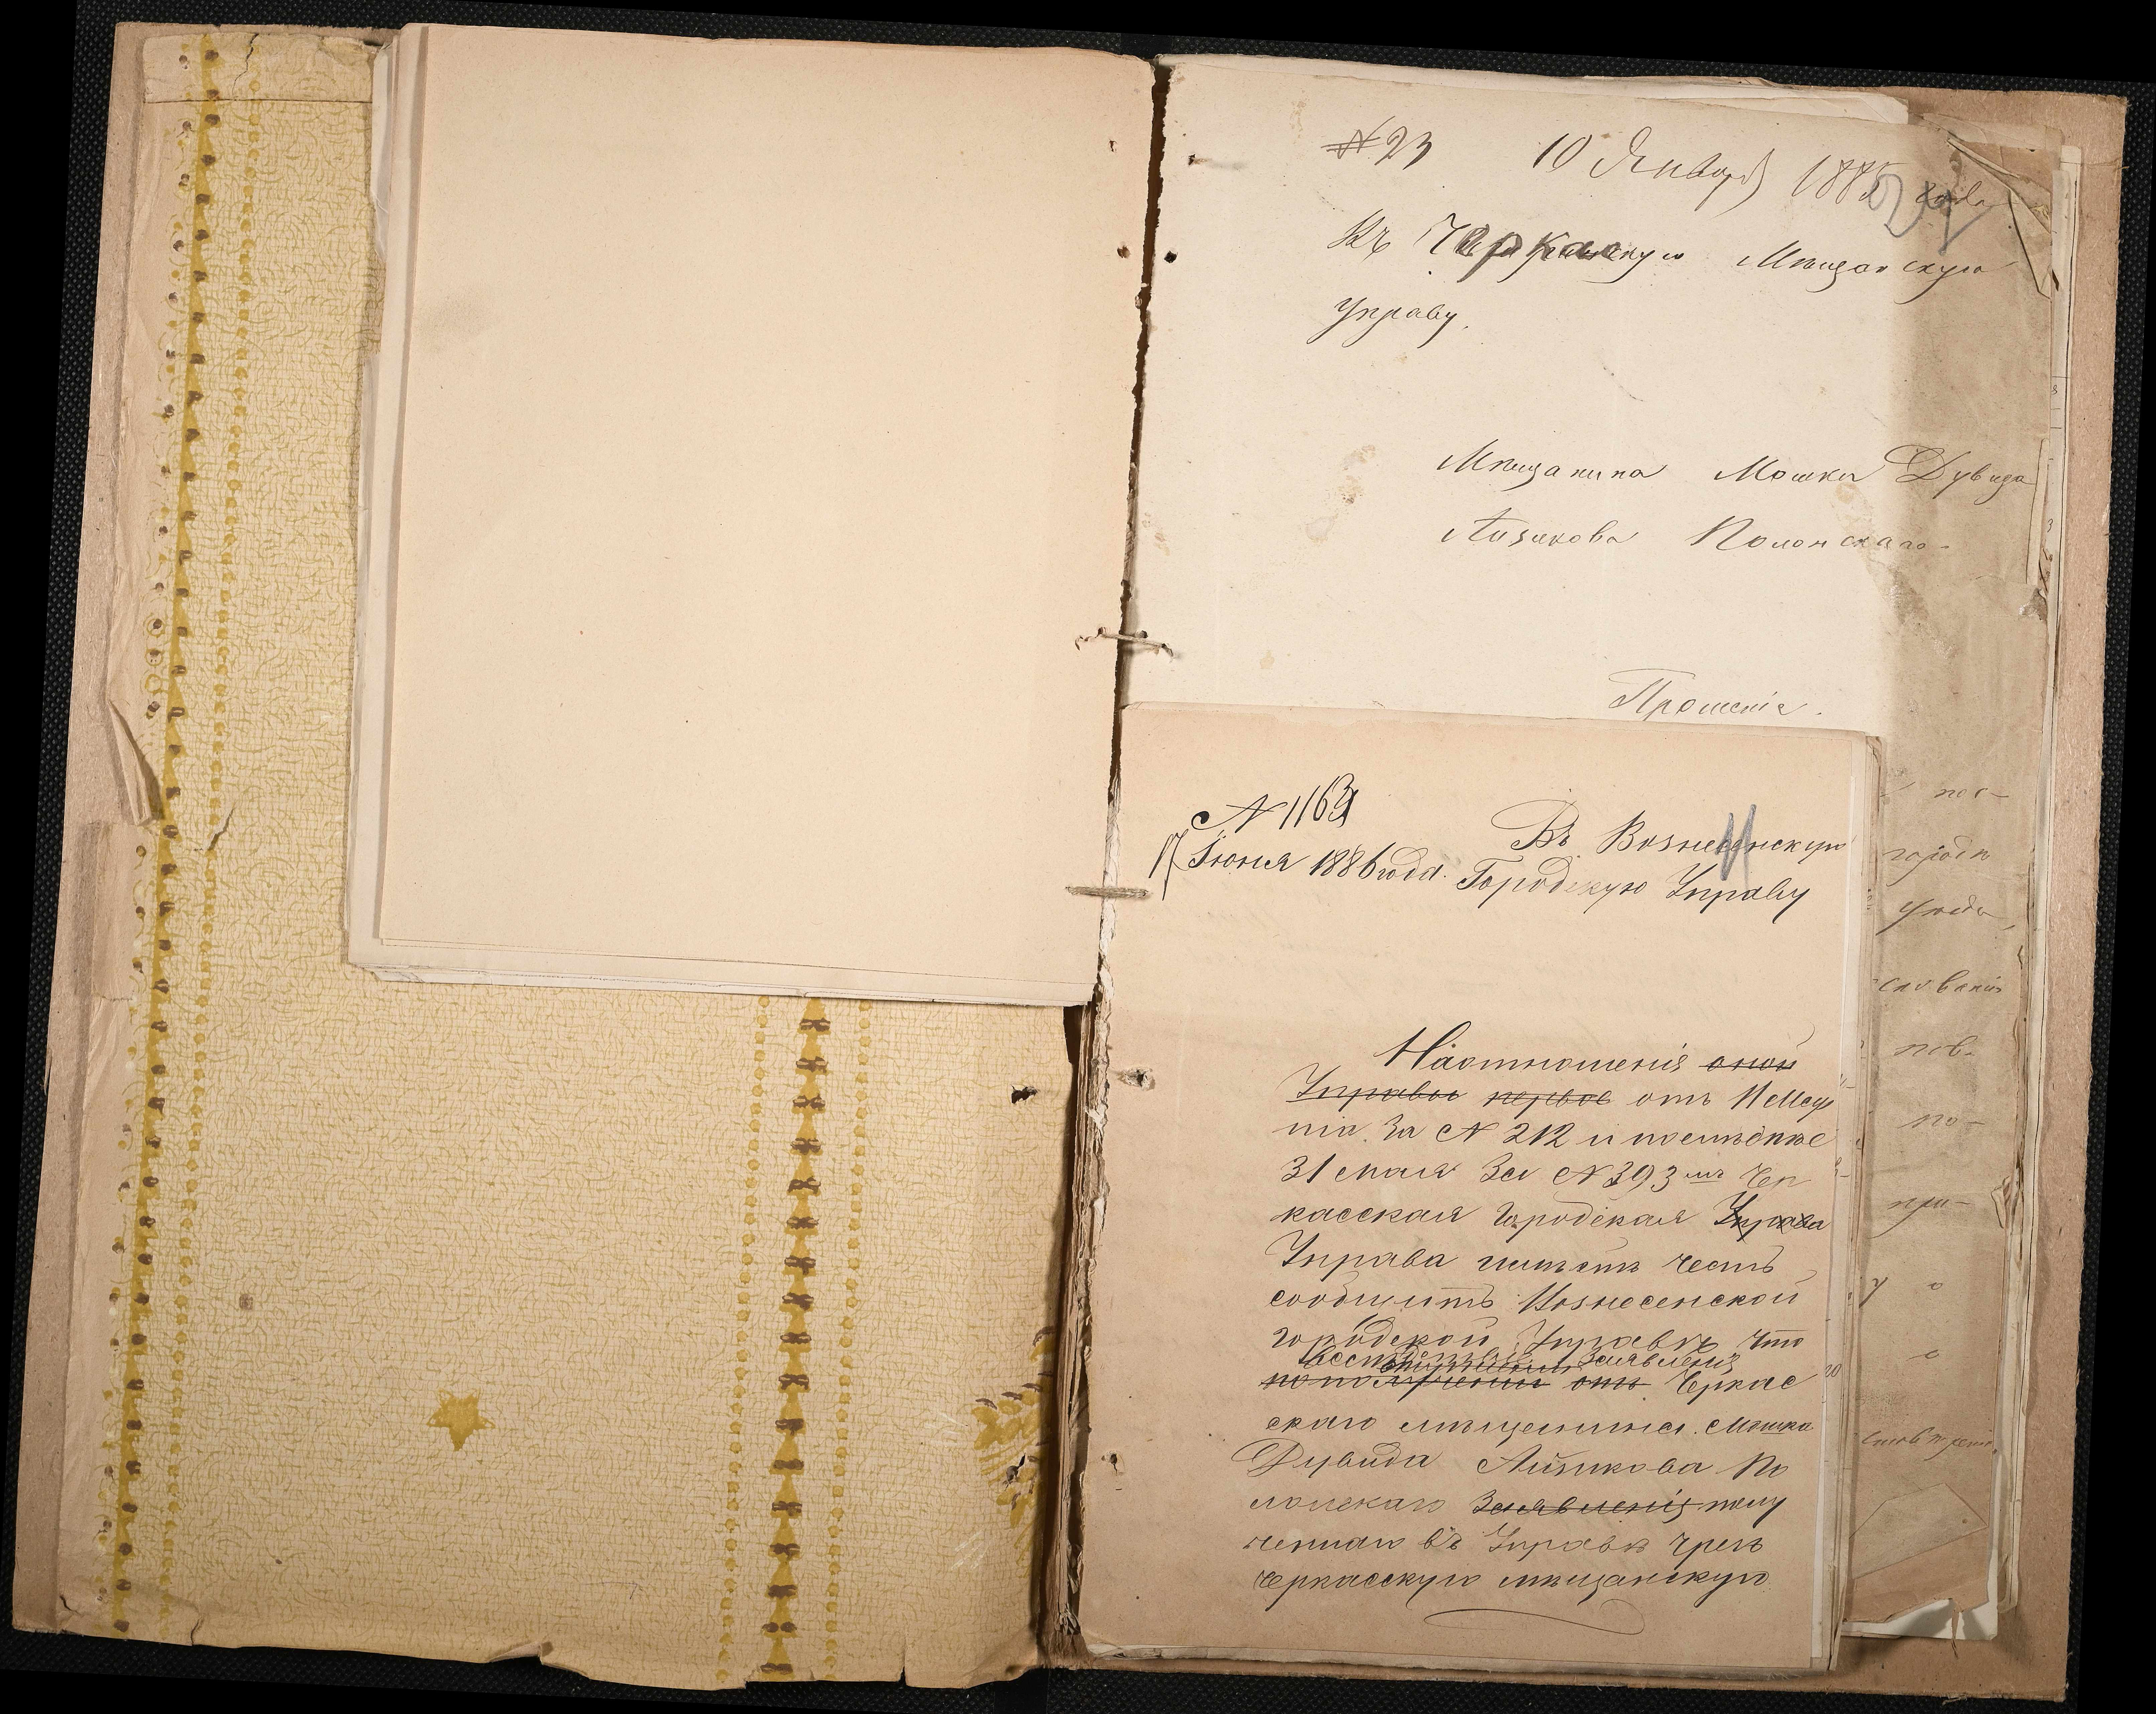 № 23 10 Января 1885 года
Въ Черкаскую Мѣщанскую
Управу.
Мѣщанина Мошки Дувида
Айзикова Полонскаго
Прошеніе.
№ 1163
17 Іюня 1886 года.
Въ Вознесенскую
Городскую Управу
На отношенія оной
Управы первое отъ 11 Мар
та за № 212 и послѣднѣе
31 мая за № 393 мъ Чер
касская Городская Управа
Управа имѣетъ честь
сообщить Вознесенской
городской Управѣ что
вслѣдствіе заявленія
по получении отъ Черкас
скаго мѣщенина Мошка
Дувида Айзикова По
лонскаго Заявленія полу
ченнаго въ Управѣ чрезъ
черкасскую мѣщанскую
пос-
города
уѣзда
пов-
по-
при-
у о
о